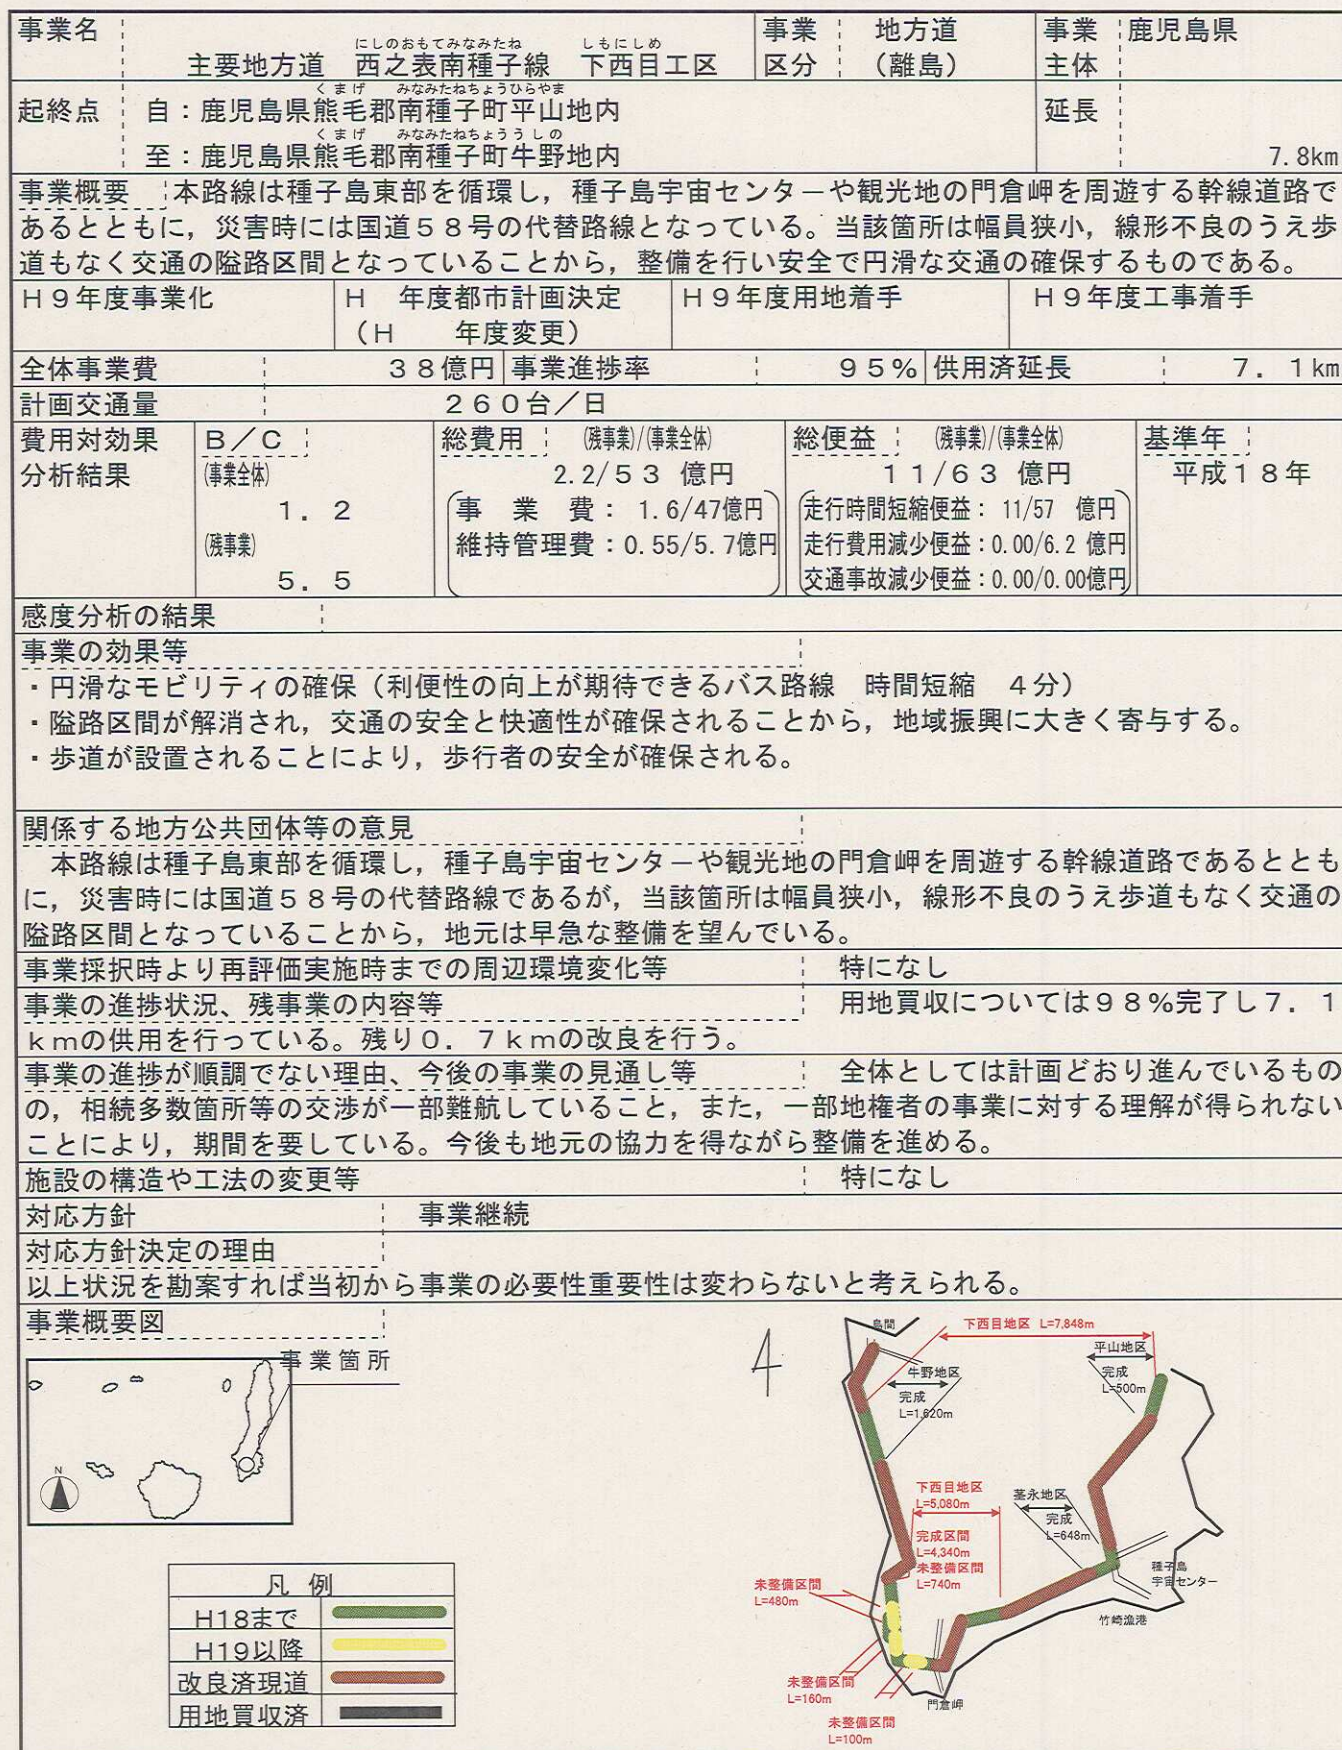 事業名 主要地方道 西之表南種子線 下西目工区 事業区分 地方道(離島) 事業主体 鹿児島県
にしのおもてみなみたね しもにしめ
くまげ みなみたねちょうひらやま
起終点 自:鹿児島県熊毛郡南種子町平山地内 延長
くまげ みなみたねちょううしの
至:鹿児島県熊毛郡南種子町牛野地内 7.8km
事業概要 本路線は種子島東部を循環し,種子島宇宙センターや観光地の門倉岬を周遊する幹線道路で
あるとともに,災害時には国道58号の代替路線となっている。当該箇所は幅員狭小,線形不良のうえ歩
道もなく交通の隘路区間となっていることから,整備を行い安全で円滑な交通の確保するものである。
H9年度事業化 H 年度都市計画決定 H9年度用地着手 H9年度工事着手
(H 年度変更)
全体事業費 38億円 事業進捗率 95% 供用済延長 7.1km
計画交通量 260台/日
費用対効果 B/C 総費用 (残事業)/(事業全体) 総便益 (残事業)/(事業全体) 基準年
分析結果 (事業全体) 2.2/53 億円 11/63 億円 平成18年
1.2 事業費:1.6/47億円 走行時間短縮便益:11/57 億円
(残事業) 維持管理費:0.55/5.7億円 走行費用減少便益:0.00/6.2 億円
5.5 交通事故減少便益:0.00/0.00億円
感度分析の結果
事業の効果等
・円滑なモビリティの確保(利便性の向上が期待できるバス路線 時間短縮 4分)
・隘路区間が解消され,交通の安全と快適性が確保されることから,地域振興に大きく寄与する。
・歩道が設置されることにより,歩行者の安全が確保される。
関係する地方公共団体等の意見
本路線は種子島東部を循環し,種子島宇宙センターや観光地の門倉岬を周遊する幹線道路であるととも
に,災害時には国道58号の代替路線であるが,当該箇所は幅員狭小,線形不良のうえ歩道もなく交通の
隘路区間となっていることから,地元は早急な整備を望んでいる。
事業採択時より再評価実施時までの周辺環境変化等 特になし
事業の進捗状況、残事業の内容等 用地買収については98%完了し7.1
kmの供用を行っている。残り0.7kmの改良を行う。
事業の進捗が順調でない理由、今後の事業の見通し等 全体としては計画どおり進んでいるもの
の,相続多数箇所等の交渉が一部難航していること,また,一部地権者の事業に対する理解が得られない
ことにより,期間を要している。今後も地元の協力を得ながら整備を進める。
施設の構造や工法の変更等 特になし
対応方針 事業継続
対応方針決定の理由
以上状況を勘案すれば当初から事業の必要性重要性は変わらないと考えられる。
事業概要図
事業箇所
N
凡 例
H18まで
H19以降
改良済現道
用地買収済
4
島間
下西目地区 L=7,848m
平山地区
完成
L=500m
牛野地区
完成
L=1,620m
下西目地区
L=5,080m
完成区間
L=4,340m
未整備区間
L=740m
茎永地区
完成
L=648m
種子島
宇宙センター
竹崎漁港
未整備区間
L=480m
未整備区間
L=160m
門倉岬
未整備区間
L=100m